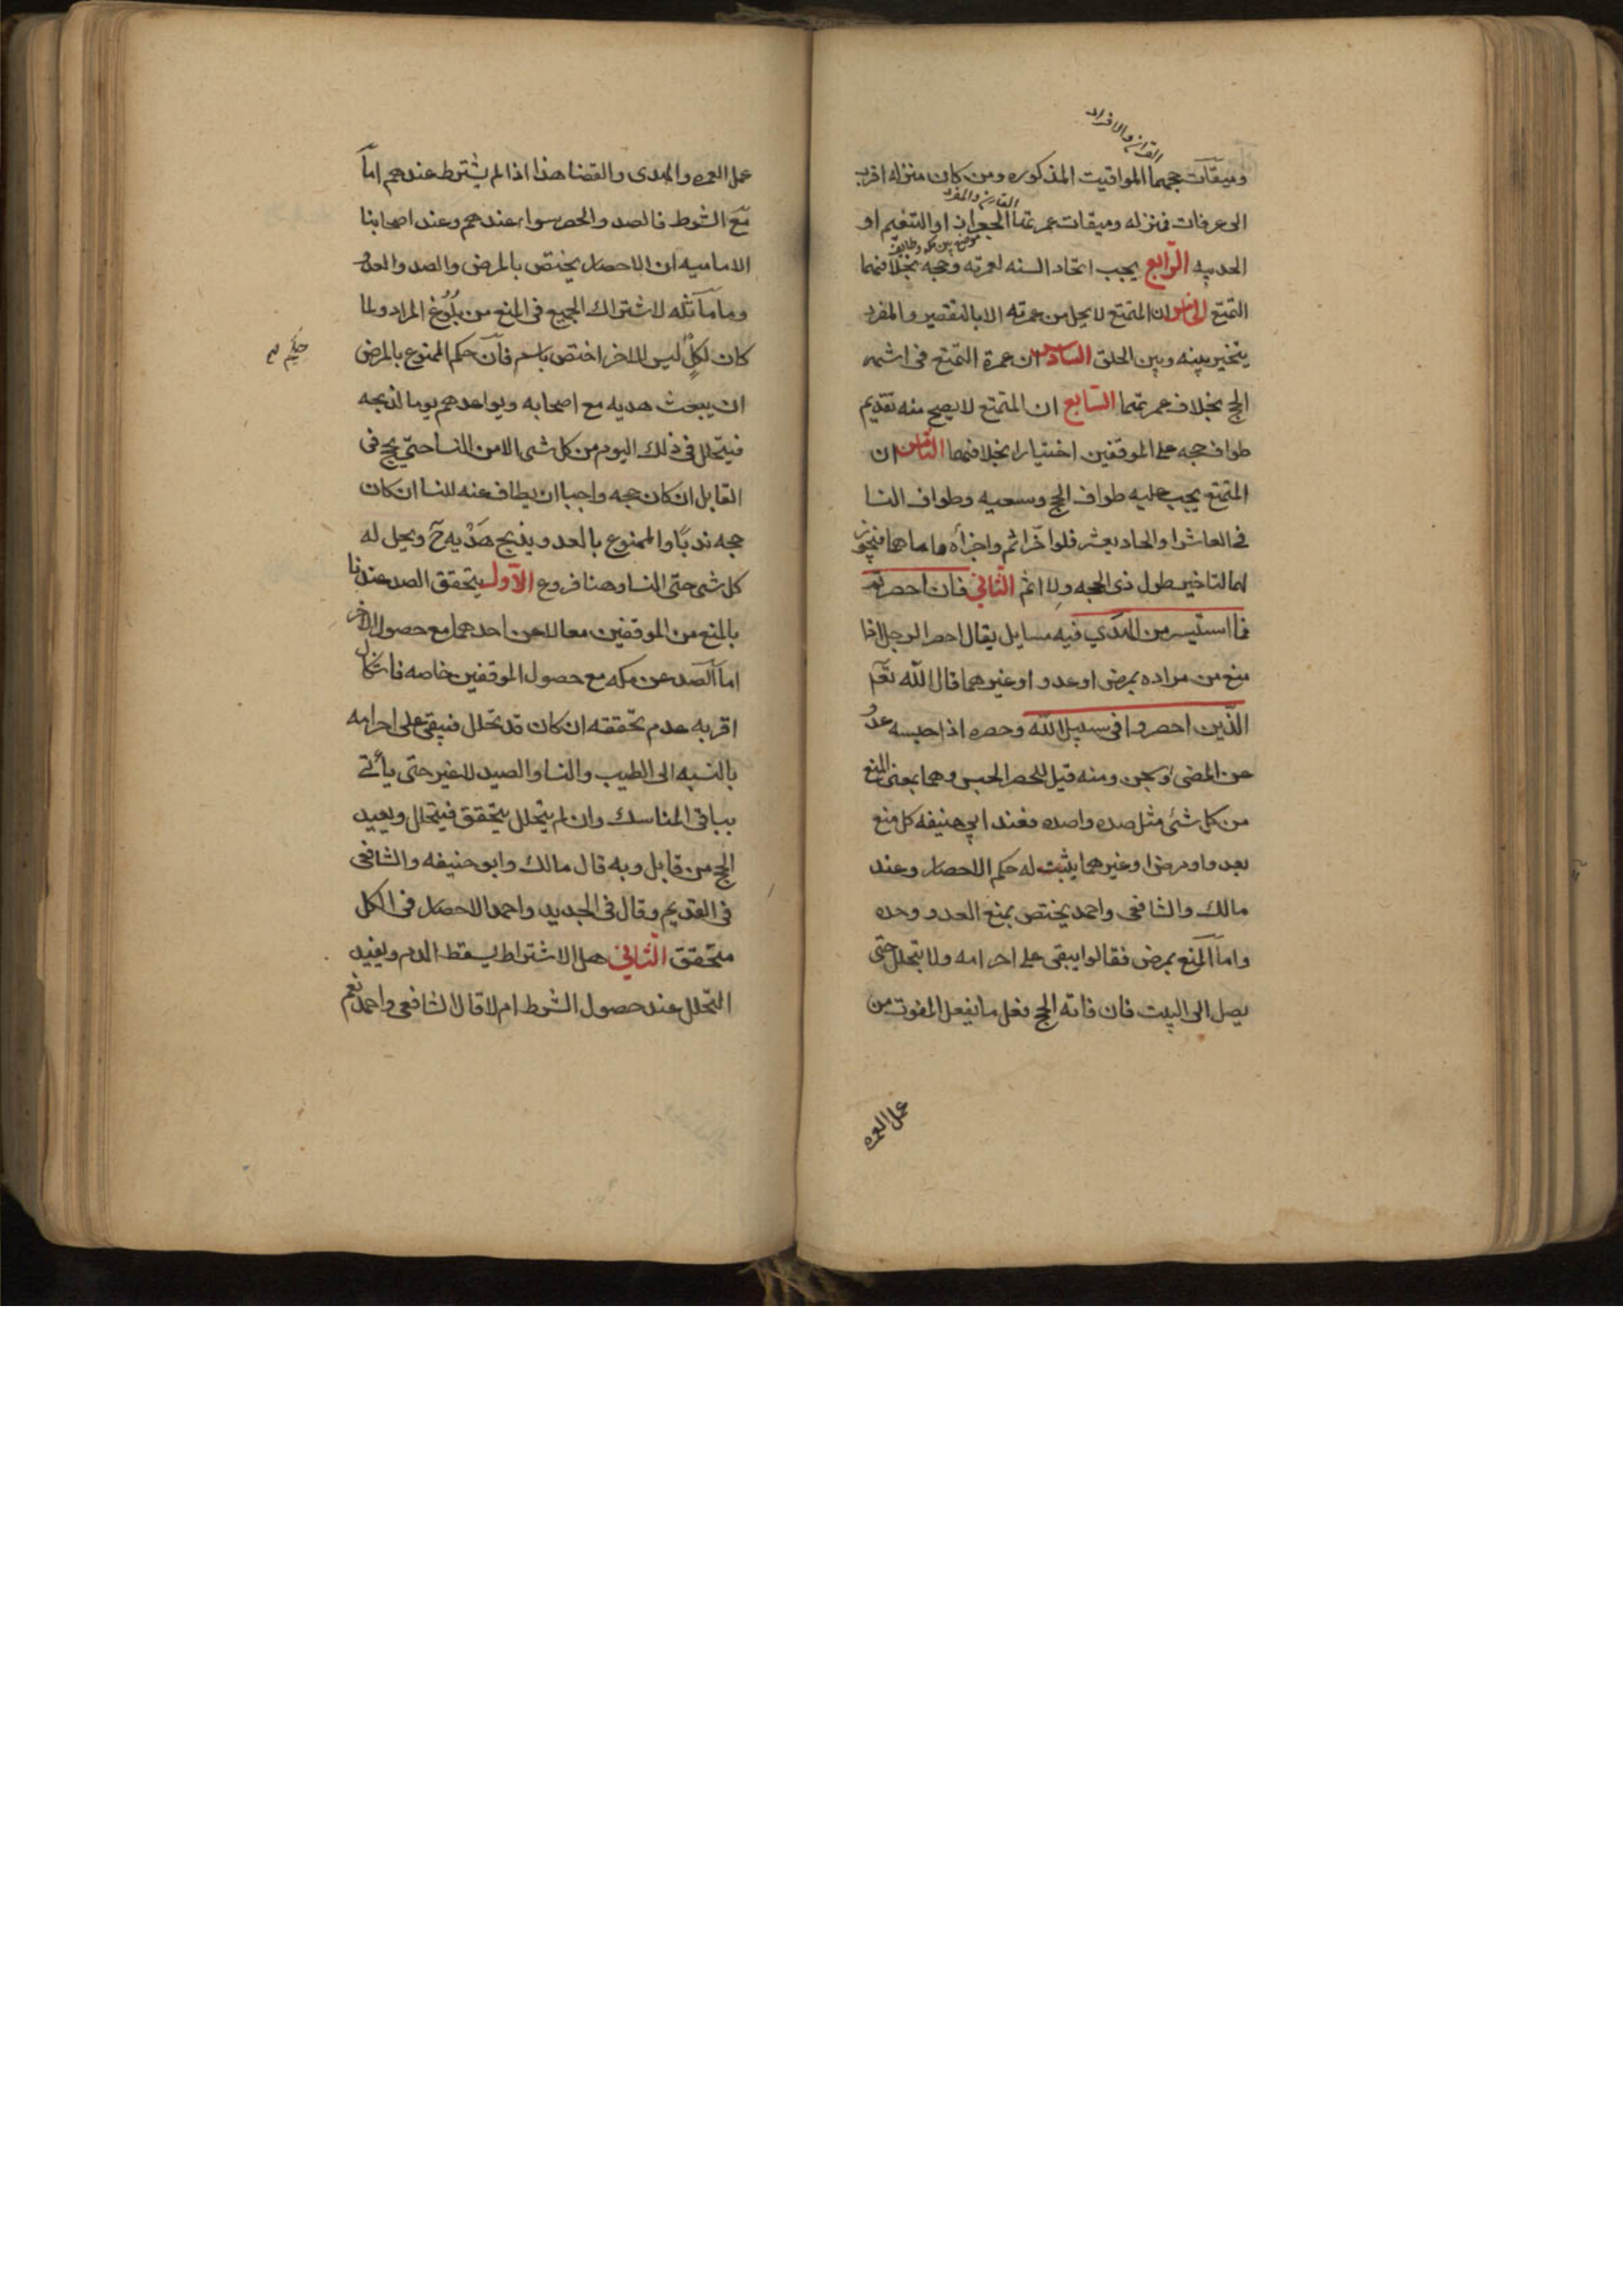 القران والافراد
وميقات حجهما المواقيت المذكوره ومن كان منزله اقرب
القارن والمفرد
الى عرفات فمنزله وميقات عمرتهما الجعرانه او التنعيم او
موضع بين مكه وطايف
الحديبيه الرّابع يجب اتحاد السنه لعمرته وحجه بخلافهما
التمتع الخامس ان المتمتع لا يحل من عمرته الا بالتقصير والمفرد
يتخير بينه وبين الحلق السادس ان عمرة التمتع فى اشهر
الحج بخلاف عمرتهما السّابع ان المتمتع لا يصح منه تقديم
طواف حجه على الموقفين اختيارا بخلافهما الثامن ان
المتمتع يجب عليه طواف الحج وسعيه وطواف النسا
فى العاشر او الحاديعشر فلو اخّر اثم واجزأه واما هما فيجوز
لهما التاخير طول ذى الحجه ولا اثم الثّانى فان احصرتم
فما استيسر من الهدي فيه مسايل يقال احصر الرجل اذا
منع من مراده بمرض او عدو او غيرهما قال الله تعم
الّذين احصروا فى سبيل الله وحصره اذا حبسه عدوّ
عن المضى او سجن ومنه قيل للحصر الحبس وهما بمعنى المنع
من كل شئ مثل صده واصده فعند ابي حنيفه كل منع
بعدو او مرض او غيرهما يثبت له حكم الاحصار وعند
مالك والشافعى واحمد يختص بمنع العدو وحده
واما المنع بمرض فقالوا يبقى على احرامه ولا يتحلل حتى
يصل الى البيت فان فاته الحج فعل ما يفعل المفوت من
عمل العمره
عمل العمره والهدى والقضا هذا اذا لم يشترط عندهم امّا
مع الشرط فالصد والحصر سواء عندهم وعند اصحابنا
الاماميه ان الاحصار يختص بالمرض والصد والعدو
وما ماثله لاشتراك الجميع فى المنع من بلوغ المراد ولما
كان لكلٍّ ليس للاخر اختص باسم فان حكم الممنوع بالمرض
حكم
ان يبعث هديه مع اصحابه ويواعدهم يوما لذبحه
فيتحلل فى ذلك اليوم من كل شى الا من النسا حتى يحج فى
القابل ان كان حجه واجبا ان يطاف عنه للنسا ان كان
حجه ندبًا والممنوع بالعدو يذبح هَدْيه ح ويحل له
كل شى حتى النسا وهنا فروع الاّول يتحقق الصد عندنا
بالمنع من الموقفين معا لا عن احدهما مع حصول الاخر
اما الصد عن مكه مع حصول الموقفين خاصه فاشكال
اقربه عدم تحققه ان كان قد تحلل فيبقى على احرامه
بالنسبه الى الطيب والنسا والصيد لا غير حتى يأتى
بباقى المناسك وان لم يتحلل يتحقق فيتحلل ويعيد
الحج من قابل وبه قال مالك وابو حنيفه والشافعى
فى القديم وقال فى الجديد واحمد الاحصار فى الكل
متحقق الثّانى هل الاشتراط يسقط الدم ويفيد
التحلل عند حصول الشرط ام لا قال الشافعى واحمد نعم